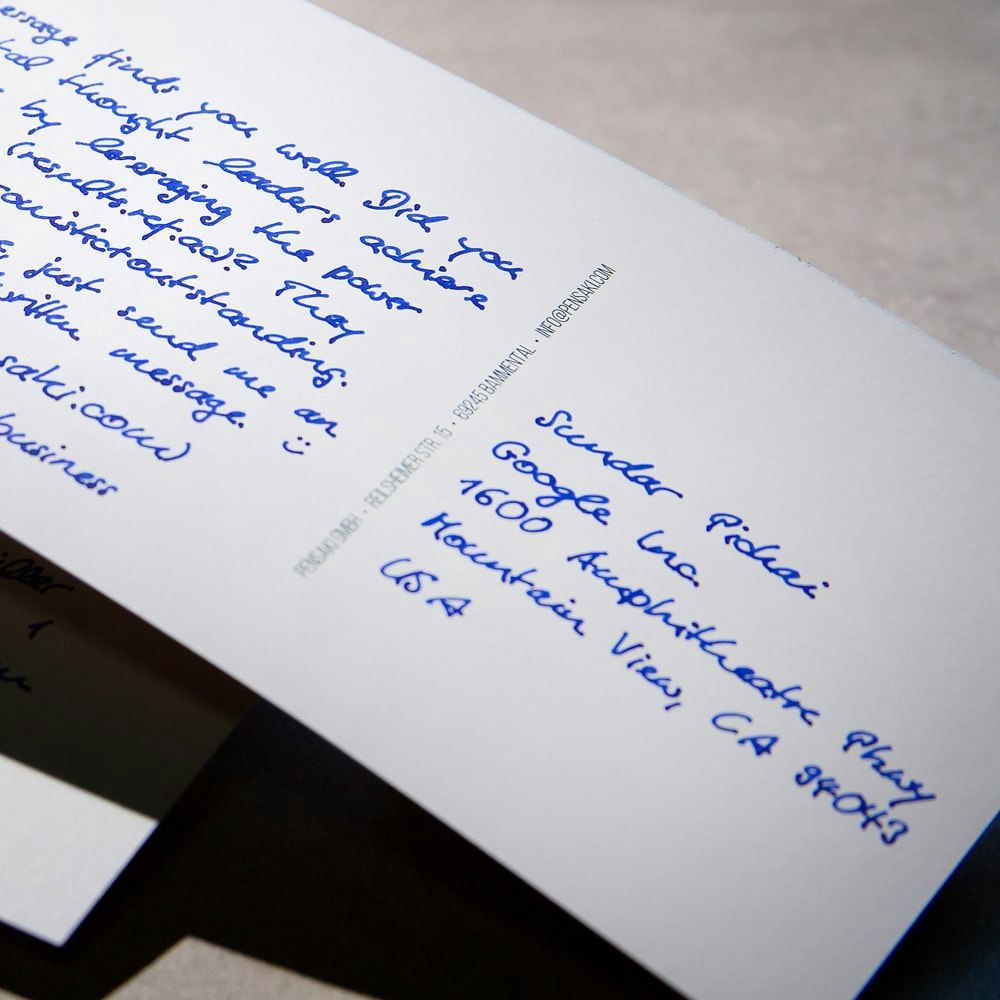 finds you well. Did you
thought leaders achieve
by leveraging the power
(results.ref.ac)? They
just send me an
message. :)
business
PENSAKI GMBH • REILSHEIMER STR. 15 • 69245 BAMMENTAL • INFO@PENSAKI.COM
Sundar Pichai
Google Inc.
1600 Amphitheatre Pkwy
Mountain View, CA 94043
USA
1